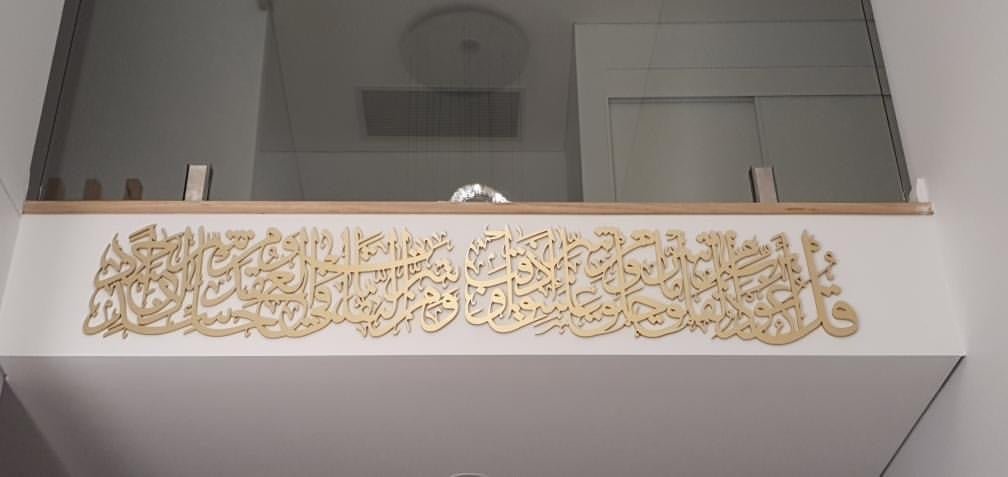 قل أعوذ برب الفلق من شر ما خلق ومن شر غاسق إذا وقب ومن شر النفاثات في العقد ومن شر حاسد إذا حسد